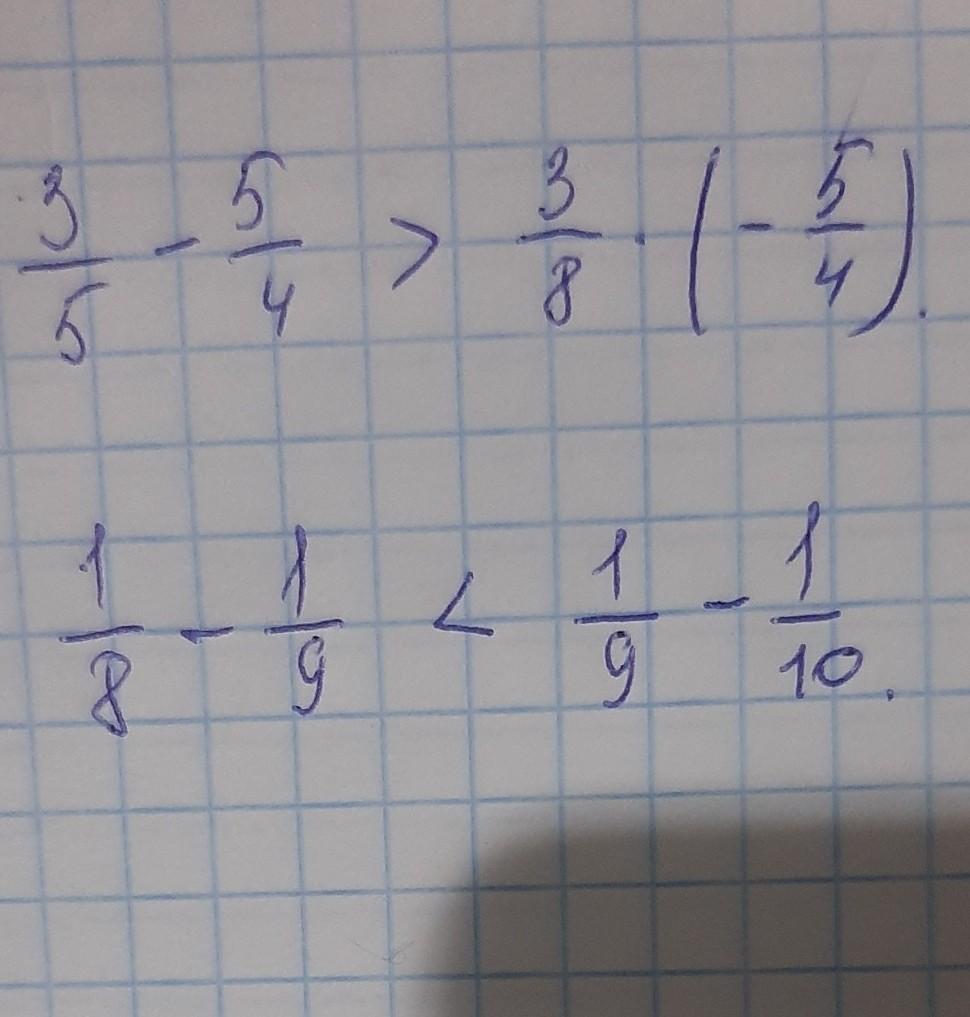 3/5 - 5/4 > 3/8 · (- 5/4).
1/8 - 1/9 < 1/9 - 1/10.